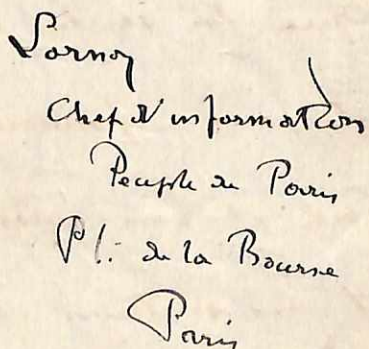 Lornoy
Chef d'information
Peuple de Paris
Pl: de la Bourse
Paris